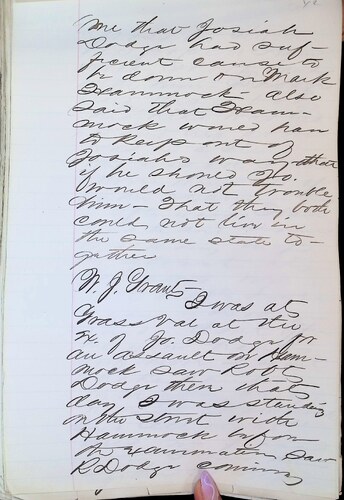 me that Josiah
Dodge had suf-
ficient cause to
be down on Mark
Hammock - Also
said that Ham-
mock would have
to keep out of
Josiah's way - that
if he should Jo.
would not trouble
him - That they both
could not live in
the same state to-
gether
W. J. Grant - I was at
Grass Val at the
Ex. of Jo. Dodge for
an assault on Ham-
mock saw Robt
Dodge then that
day I was standing
on the street with
Hammock before
the examination Saw
R Dodge coming